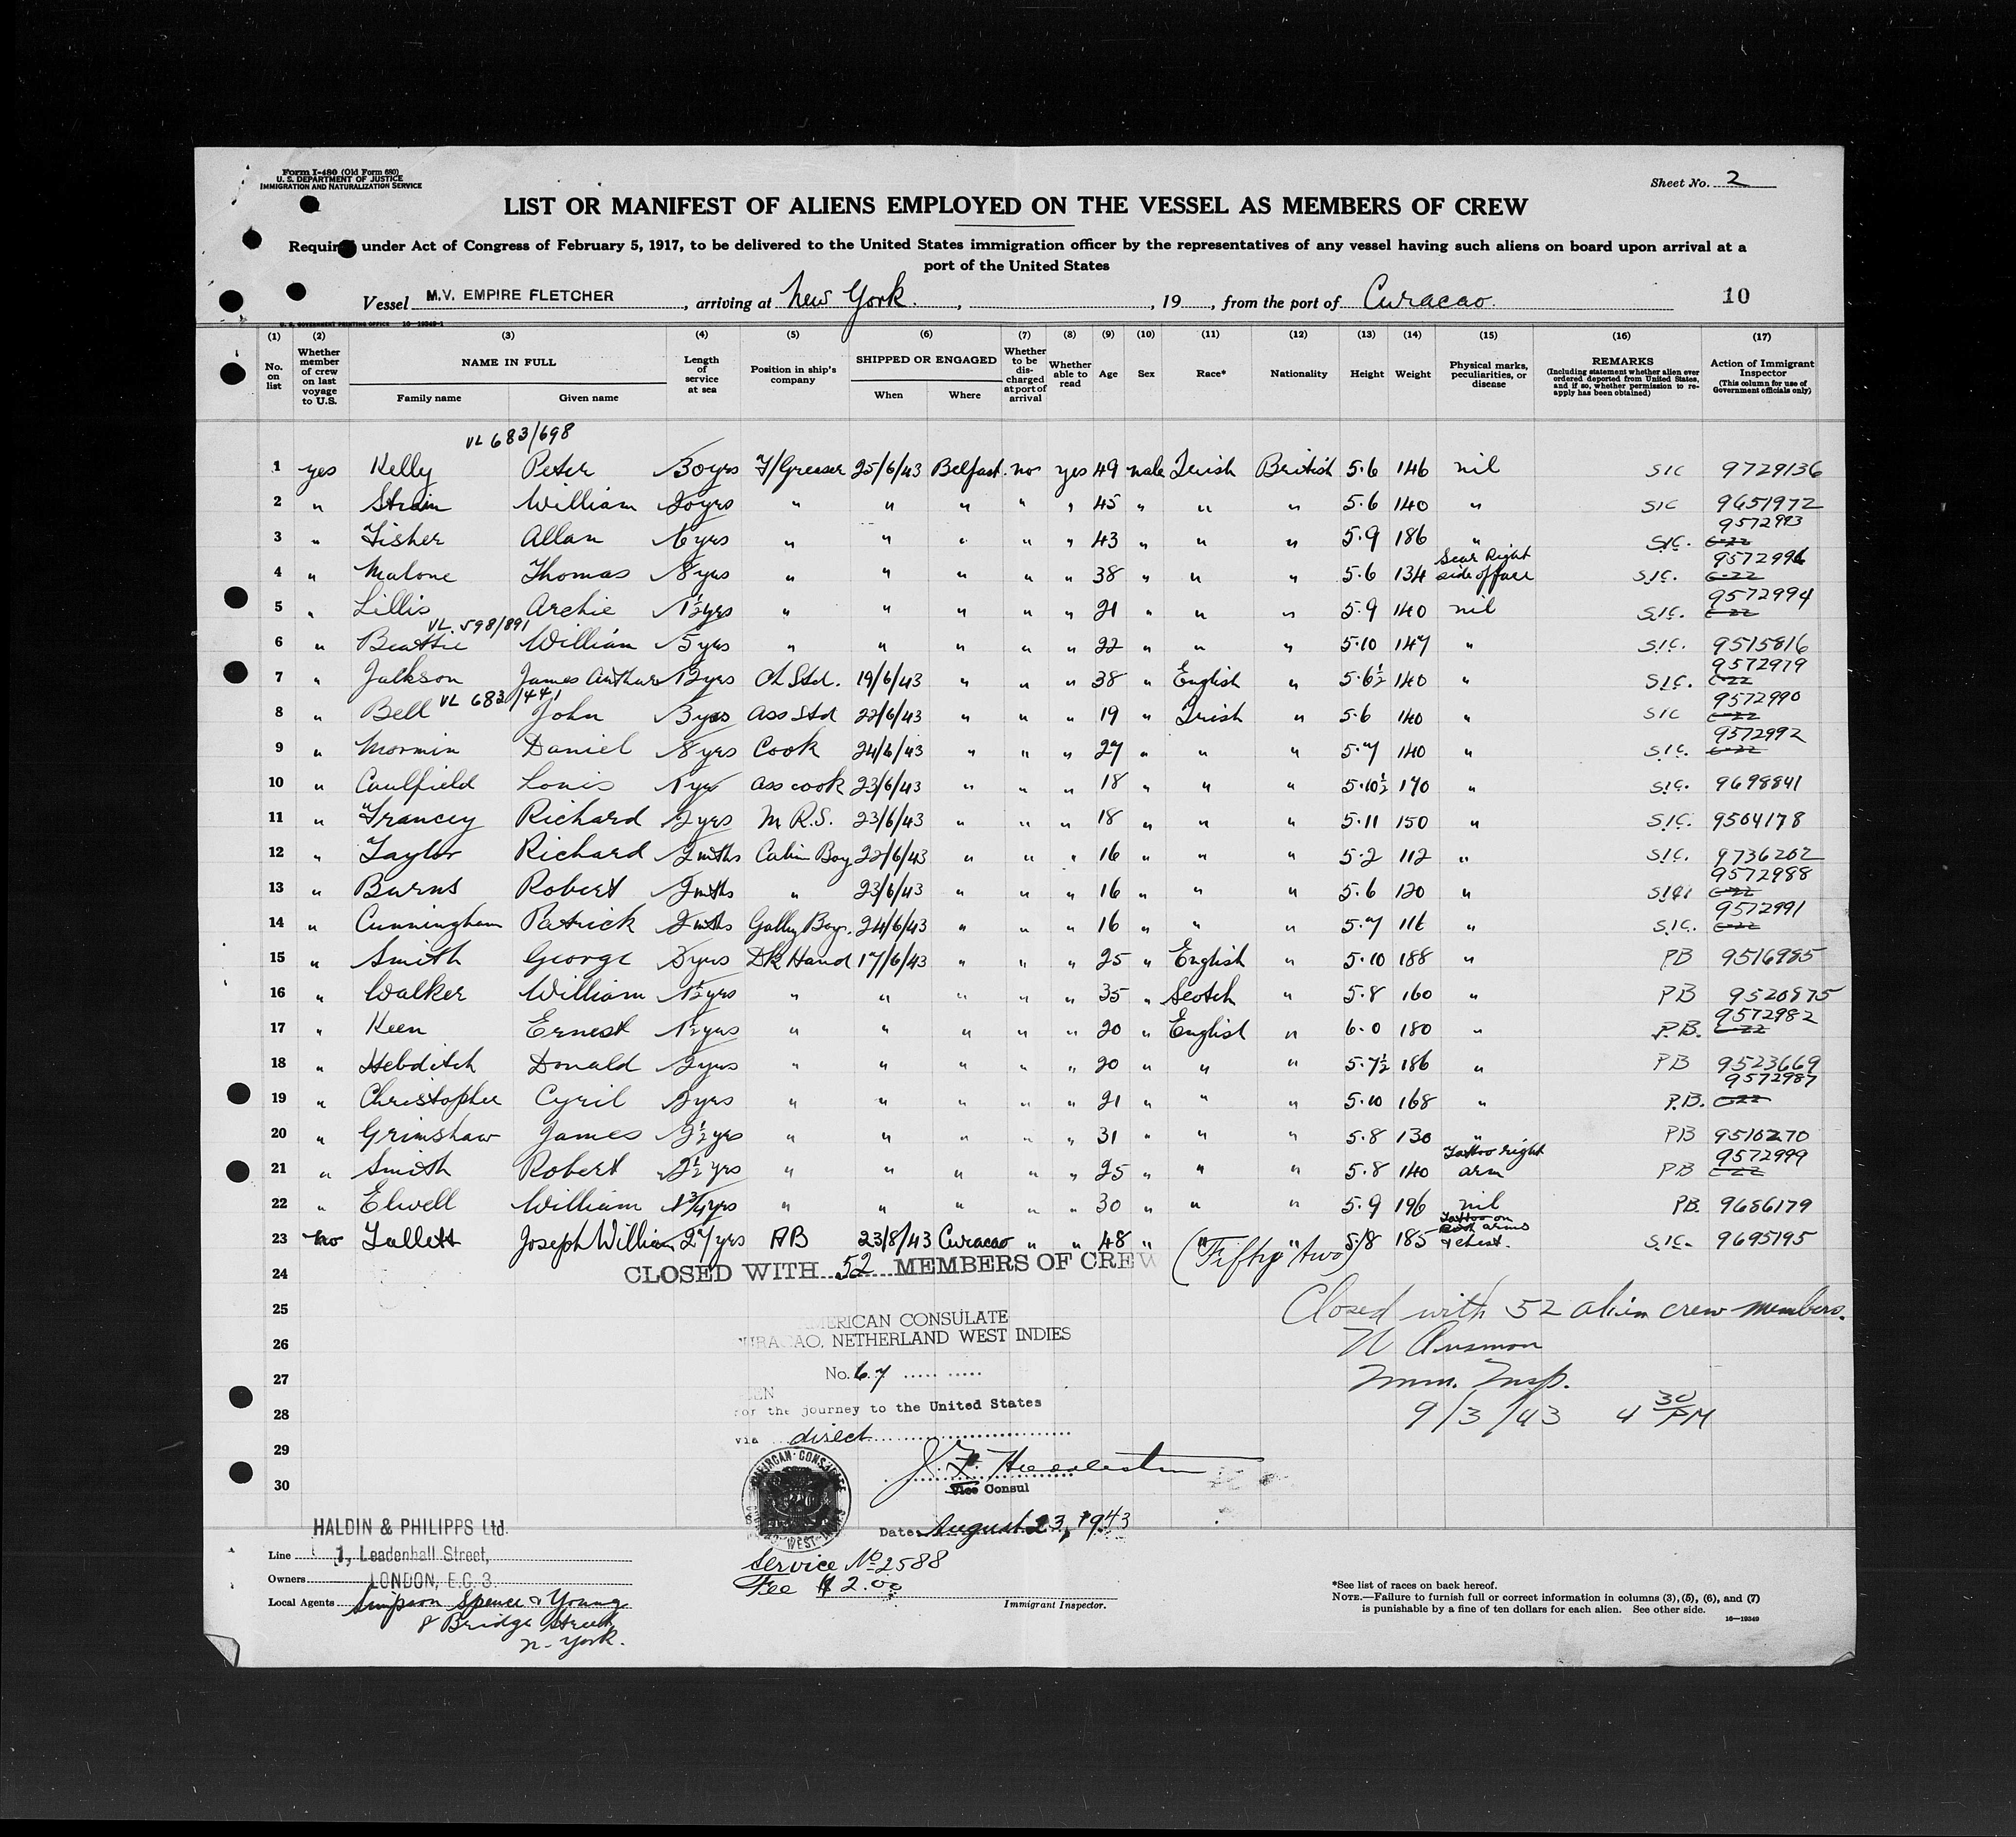 Form I-480 (Old Form 680)
U. S. DEPARTMENT OF JUSTICE
IMMIGRATION AND NATURALIZATION SERVICE
Sheet No. 2
LIST OR MANIFEST OF ALIENS EMPLOYED ON THE VESSEL AS MEMBERS OF CREW
Required under Act of Congress of February 5, 1917, to be delivered to the United States immigration officer by the representatives of any vessel having such aliens on board upon arrival at a
port of the United States
Vessel M.V. EMPIRE FLETCHER, arriving at New York., , 19 , from the port of Curacao. 10
U. S. GOVERNMENT PRINTING OFFICE 16-19349-1
(1) (2) (3) (4) (5) (6) (7) (8) (9) (10) (11) (12) (13) (14) (15) (16) (17)
No. on list
Whether member of crew on last voyage to U.S.
NAME IN FULL
Family name
Given name
Length of service at sea
Position in ship's company
SHIPPED OR ENGAGED
When
Where
Whether to be discharged at port of arrival
Whether able to read
Age
Sex
Race*
Nationality
Height
Weight
Physical marks, peculiarities, or disease
REMARKS
(Including statement whether alien ever ordered deported from United States, and if so, whether permission to reapply has been obtained)
Action of Immigrant Inspector
(This column for use of Government officials only)
VL 683/698
1 yes Kelly Peter 30yrs F/Greaser 25/6/43 Belfast. no yes 49 male Irish British 5.6 146 nil SIC 9729136
2 " Strain William 20yrs " " " " " 45 " " " 5.6 140 " SIC 9651972
3 " Fisher Allan 6yrs " " " " " 43 " " " 5.9 186 " S.I.C. C-22 9572993
4 " Malone Thomas 8yrs " " " " " 38 " " " 5.6 134 Scar Right side of face S.I.C. C-22 9572996
5 " Lillis Archie 1½yrs " " " " " 21 " " " 5.9 140 nil S.I.C. C-22 9572994
VL. 598/891
6 " Beattie William 5yrs " " " " " 22 " " " 5.10 147 " S.I.C. 9515816
7 " Jackson James Arthur 12yrs Ch Std. 19/6/43 " " " 38 " English " 5.6½ 140 " S.I.C. C-22 9572979
VL 683/441
8 " Bell John 3yrs Ass Std 22/6/43 " " " 19 " Irish " 5.6 140 " SIC C-22 9572990
9 " Mormin Daniel 8yrs Cook 24/6/43 " " " 27 " " " 5.7 140 " S.I.C. C-22 9572992
10 " Caulfield Louis 1yr Ass cook 23/6/43 " " " 18 " " " 5.10½ 170 " S.I.C. 9698841
11 " Francey Richard 2yrs M.R.S. 23/6/43 " " " 18 " " " 5.11 150 " S.I.C. 9504178
12 " Taylor Richard 2mths Cabin Boy 22/6/43 " " " 16 " " " 5.2 112 " S.I.C. 9736202
13 " Burns Robert 2mths " 23/6/43 " " " 16 " " " 5.6 120 " S.I.C. C-22 9572988
14 " Cunningham Patrick 2mths Galley Boy. 24/6/43 " " " 16 " " " 5.7 116 " S.I.C. C-22 9572991
15 " Smith George 3yrs Dk Hand 17/6/43 " " " 25 " English " 5.10 188 " PB 9516985
16 " Walker William 1½yrs " " " " " 35 " Scotch " 5.8 160 " PB 9520875
17 " Keen Ernest 1½yrs " " " " " 20 " English " 6.0 180 " P.B. C-22 9572982
18 " Hebditch Donald 2yrs " " " " " 20 " " " 5.7½ 186 " PB 9523669
19 " Christopher Cyril 3yrs " " " " " 21 " " " 5.10 168 " P.B. C-22 9572987
20 " Grimshaw James 2½yrs " " " " " 31 " " " 5.8 130 " PB 9510270
21 " Smith Robert 2½yrs " " " " " 25 " " " 5.8 140 Tattoo right arm PB C-22 9572999
22 " Elwell William 1¾yrs " " " " " 30 " " " 5.9 196 nil PB. 9686179
23 no Tallett Joseph William 27yrs AB 23/8/43 Curacao " " 48 " " " 5/8 185 Tattoo on both arms & chest. S.I.C. 9695195
24 CLOSED WITH 52 MEMBERS OF CREW (Fifty two)
25 Closed with 52 alien crew members.
AMERICAN CONSULATE
26 CURACAO, NETHERLAND WEST INDIES
27 No. 67
Imm. Insp.
for the journey to the United States
28 9/3/43 4 30 PM
via direct
29
Vice Consul
30
Date August 23, 1943
HALDIN & PHILIPPS Ltd.
Line 1, Leadenhall Street,
Owners LONDON, E.C. 3.
Local Agents Simpson Spence & Young
8 Bridge Street,
N- York.
Service No 2588
Fee $ 2.00
Immigrant Inspector.
*See list of races on back hereof.
NOTE.—Failure to furnish full or correct information in columns (3), (5), (6), and (7)
is punishable by a fine of ten dollars for each alien. See other side.
16—19349